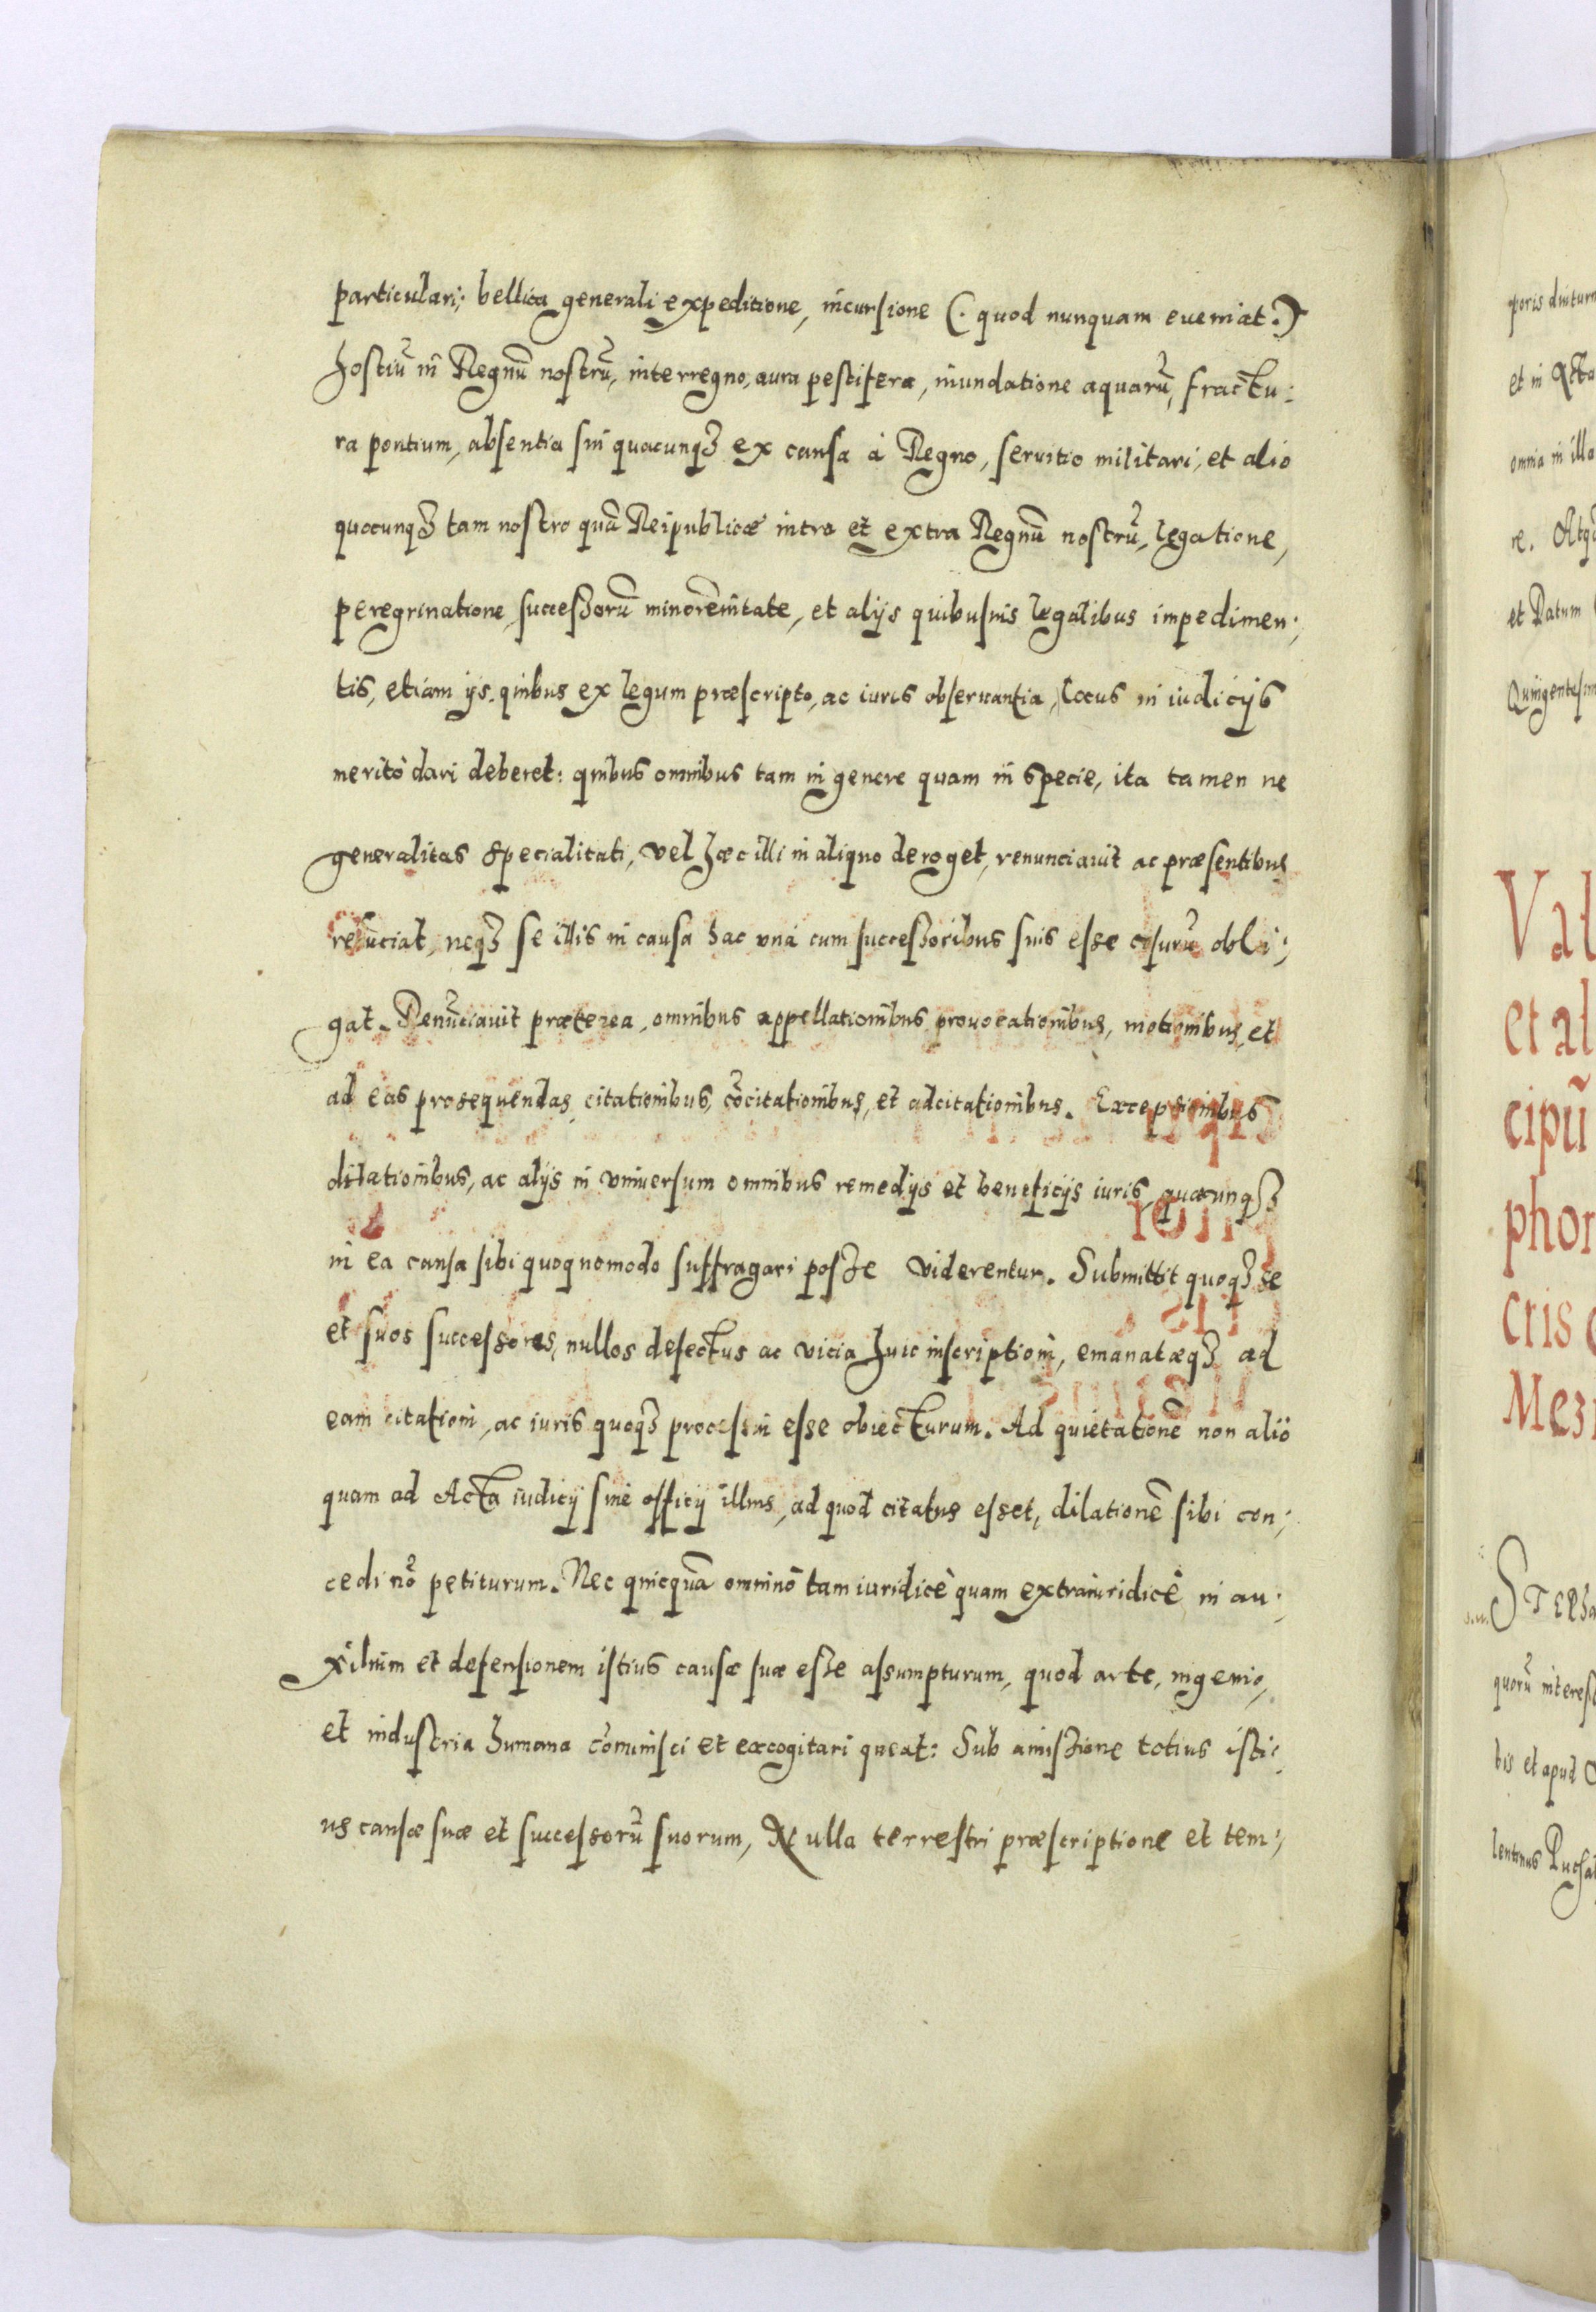 particulari; bellica generali expeditione, incursione (. quod nunquam eueniat.)
hostiũ in Regnũ nostrũ, interregno, aura pestifera, inundatione aquarũ, fractu:
ra pontium, absentia sui quacunqꝫ ex causa à Regno, seruitio militari, et alio
quocunqꝫ tam nostro quã Reipublicæ intra et extra Regnũ nostrũ, legatione,
peregrinatione, successorũ minorẽnitate, et alijs quibusuis legalibus impedimen:
tis, etiam ijs, quibus ex legum præscripto, ac iuris obseruantia, locus in iudicijs
meritò dari deberet: quibus omnibus tam in genere quam in specie, ita tamen ne
generalitas specialitati, vel hæc illi in aliquo deroget, renunciauit ac præsentibus
renũciat, neqꝫ se illis in causa hac vnà cum successoribus suis esse vsurũ obli:
gat. Renũciauit præterea, omnibus appellationibus, prouocationibus, motionibus, et
ad eas prosequendas citationibus, cõcitationibus, et adcitationibus. Exceptionibus
dilationibus, ac alijs in vniuersum omnibus remedijs et beneficijs iuris, quæcunqꝫ
in ea causa sibi quoquomodo suffragari posse viderentur. Submittit quoqꝫ se
et suos successores, nullos defectus ac vicia huic inscriptioni, emanatæqꝫ ad
eam citationi, ac iuris quoqꝫ processui esse obiecturum. Ad quietationẽ non aliò
quam ad Acta iudicij siue officij illius, ad quod citatus esset, dilationẽ sibi con:
cedi nõ petiturum. Nec quicquã omninò tam iuridicè quam extraiuridicè in au:
xilium et defensionem istius causæ suæ esse assumpturum, quod arte, ingenio,
et industria humana cõminisci et excogitari queat: Sub amissione totius isti:
us causæ suæ et successorũ suorum, Nulla terrestri præscriptione et tem:
poris diuturn
et in Acta
omnia in illa
re. Atqꝫ
et Datum
Quingentesim
Val
et al
cipũ
phor
cris
Mez
Stepha
quorũ interes
bis et apud
lentinus